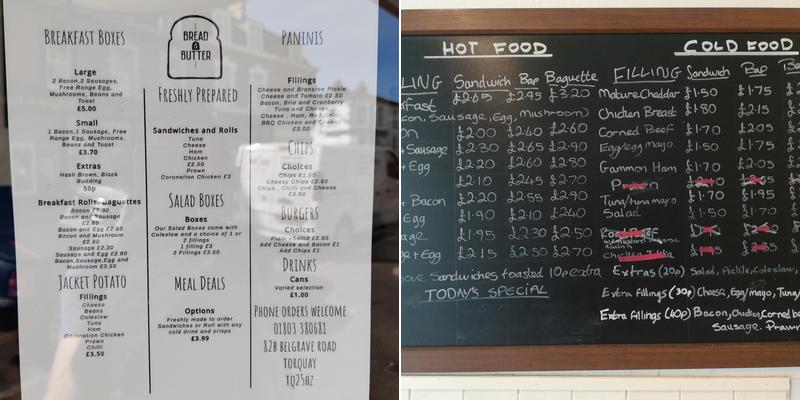 BREAKFAST BOXES
Large
2 Bacon,2 Sausages,
Free Range Egg,
Mushrooms, Beans and
Toast
£5.00
Small
1 Bacon,1 Sausage, Free
Range Egg, Mushrooms,
Beans and Toast
£3.70
Extras
Hash Brown, Black
Budding
50p
Breakfast Rolls, Baguettes
Bacon £2.30
Bacon and Sausage
£2.80
Bacon and Egg £2.80
Bacon and Mushroom
£2.80
Sausage £2.30
Sausage and Egg £2.80
Bacon,Sausage,Egg and
Mushroom £3.50
JACKET POTATO
Fillings
Cheese
Beans
Coleslaw
Tuna
Ham
Coronation Chicken
Prawn
Chilli
£3.50
BREAD
&
BUTTER
FRESHLY PREPARED
Sandwiches and Rolls
Tuna
Cheese
Ham
Chicken
£2.50
Prawn
Coronation Chicken £3
SALAD BOXES
Boxes
Our Salad Boxes come with
Coleslaw and a choice of 1 or
2 fillings
1 filling £3
2 Fillings £3.50
MEAL DEALS
Options
Freshly made to order
Sandwiches or Roll with any
cold drink and crisps
£3.99
PANINIS
Fillings
Cheese and Branston Pickle
Cheese and Tomato £2.50
Bacon, Brie and Cranberry
Tuna and Cheese
Cheese , Ham, Red Onion
BBQ Chicken and Cheese
£3.00
CHIPS
Choices
Chips £1.50
Cheesy Chips £2.50
Chips , Chilli and Cheese
£3.50
BURGERS
Choices
Plain +Salad £2.80
Add Cheese and Bacon £1
Add Chips £1
DRINKS
Cans
Varied selection
£1.00
PHONE ORDERS WELCOME
01803 380681
82B BELGRAVE ROAD
TORQUAY
TQ25HZ
HOT FOOD
LING Sandwich Bap Baguette
kfast £2.65 £2.95 £3.20
con, Sausage, Egg, Mushroom)
on £2.00 £2.40 £2.60
+ Sausage £2.30 £2.65 £2.90
+ Egg £2.20 £2.60 £2.80
£2.10 £2.45 £2.70
+ Bacon £2.20 £2.55 £2.90
Egg £1.90 £2.10 £2.40
age £1.95 £2.30 £2.50
ge + Egg £2.15 £2.50 £2.70
Sandwiches toasted 10p extra
TODAY'S SPECIAL
COLD FOOD
FILLING Sandwich Bap
Mature Cheddar £1.50 £1.75
Chicken Breast £1.80 £2.15
Corned Beef £1.70 £2.05
Egg/egg mayo £1.50 £1.75
Gammon Ham £1.70 £2.05
Tuna/tuna mayo £1.70 £1.95
Salad £1.50 £1.70
Extras (20p) Salad, Pickle, Coleslaw,
Extra fillings (30p) Cheese, Egg/mayo, Tuna/
Extra fillings (40p) Bacon, Chicken, Corned be
Sausage, Prawn